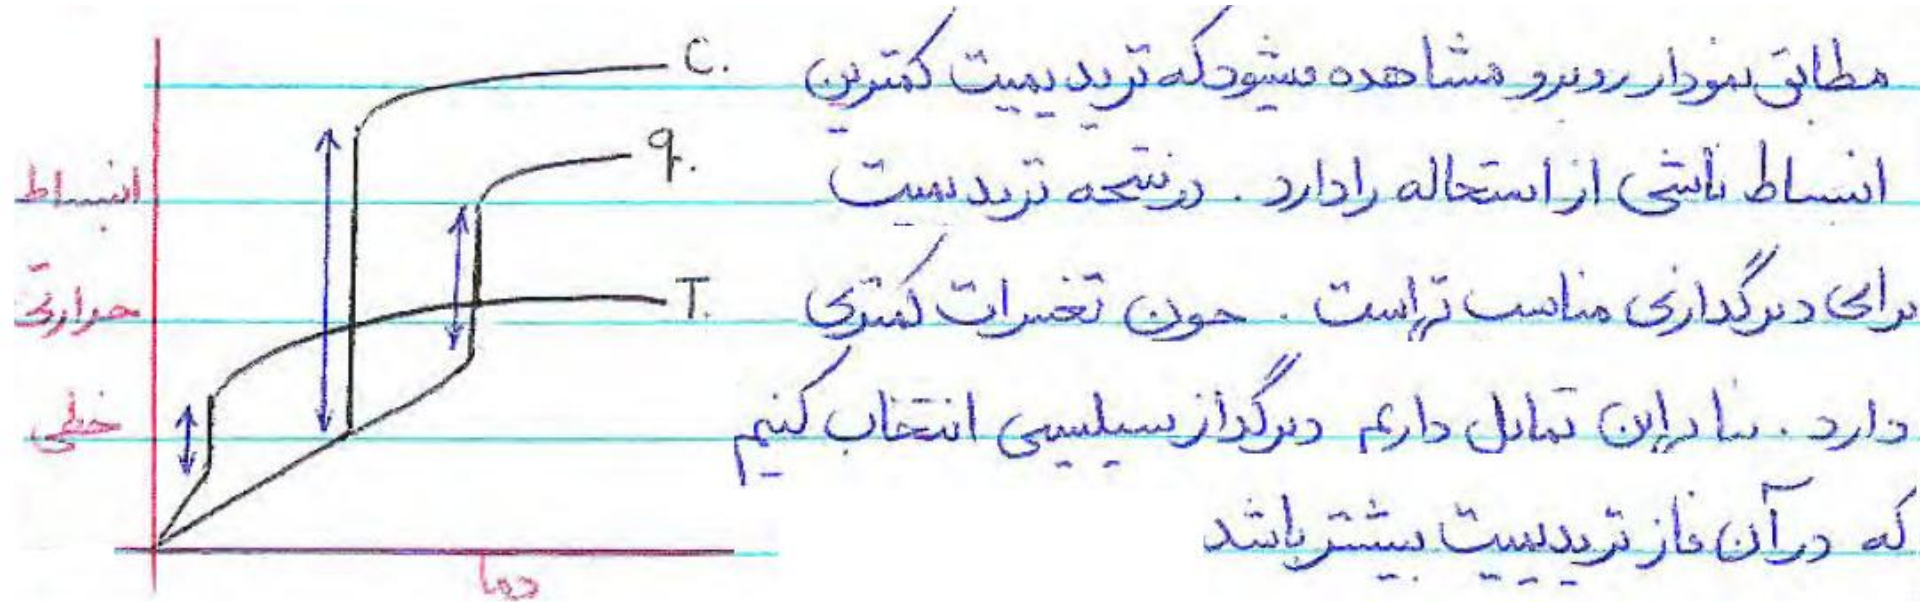 مطابق نمودار روبرو مشاهده میشود که تریدیمیت کمترین
انبساط ناشی از استحاله را دارد . در نتیجه تریدیمیت
برای دیرگدازی مناسب تر است . چون تغییرات کمتری
دارد . بنابراین تمایل داریم دیرگداز سیلیسی انتخاب کنیم
که در آن فاز تریدیمیت بیشتر باشد
C.
q.
T.
انبساط
حرارتی
خطی
دما